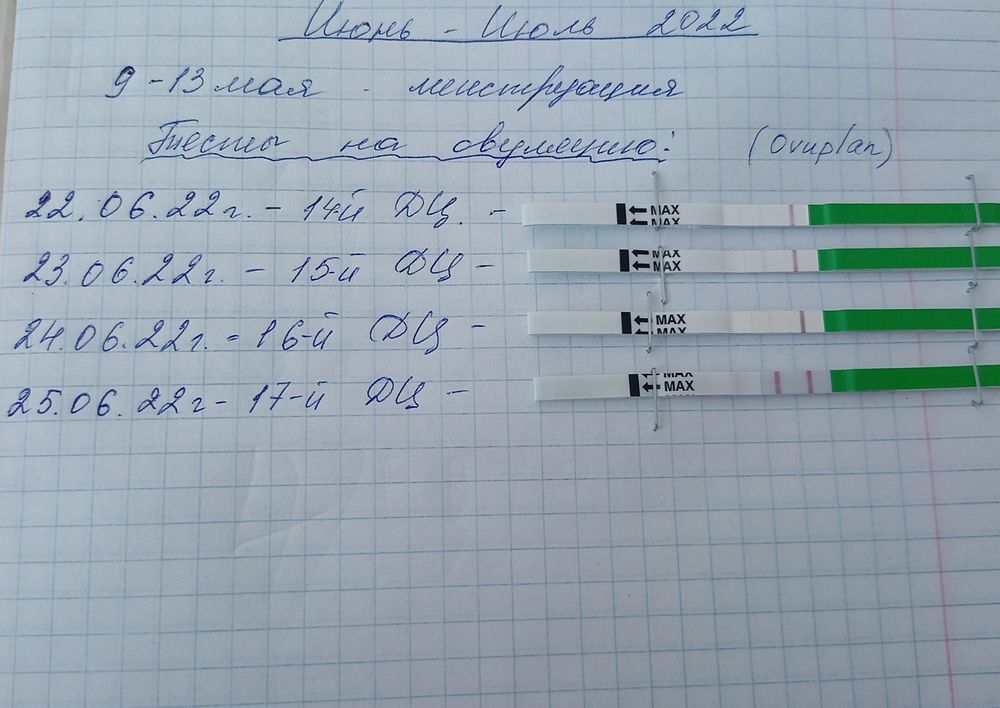 Июнь - Июль 2022
9 - 13 мая - менструация
Тесты на овуляцию: (Ovuplan)
22.06.22г. - 14-й ДЦ. - MAX MAX
23.06.22г. - 15-й ДЦ - MAX MAX
24.06.22г. - 16-й ДЦ - MAX MAX
25.06.22г - 17-й ДЦ - MAX MAX